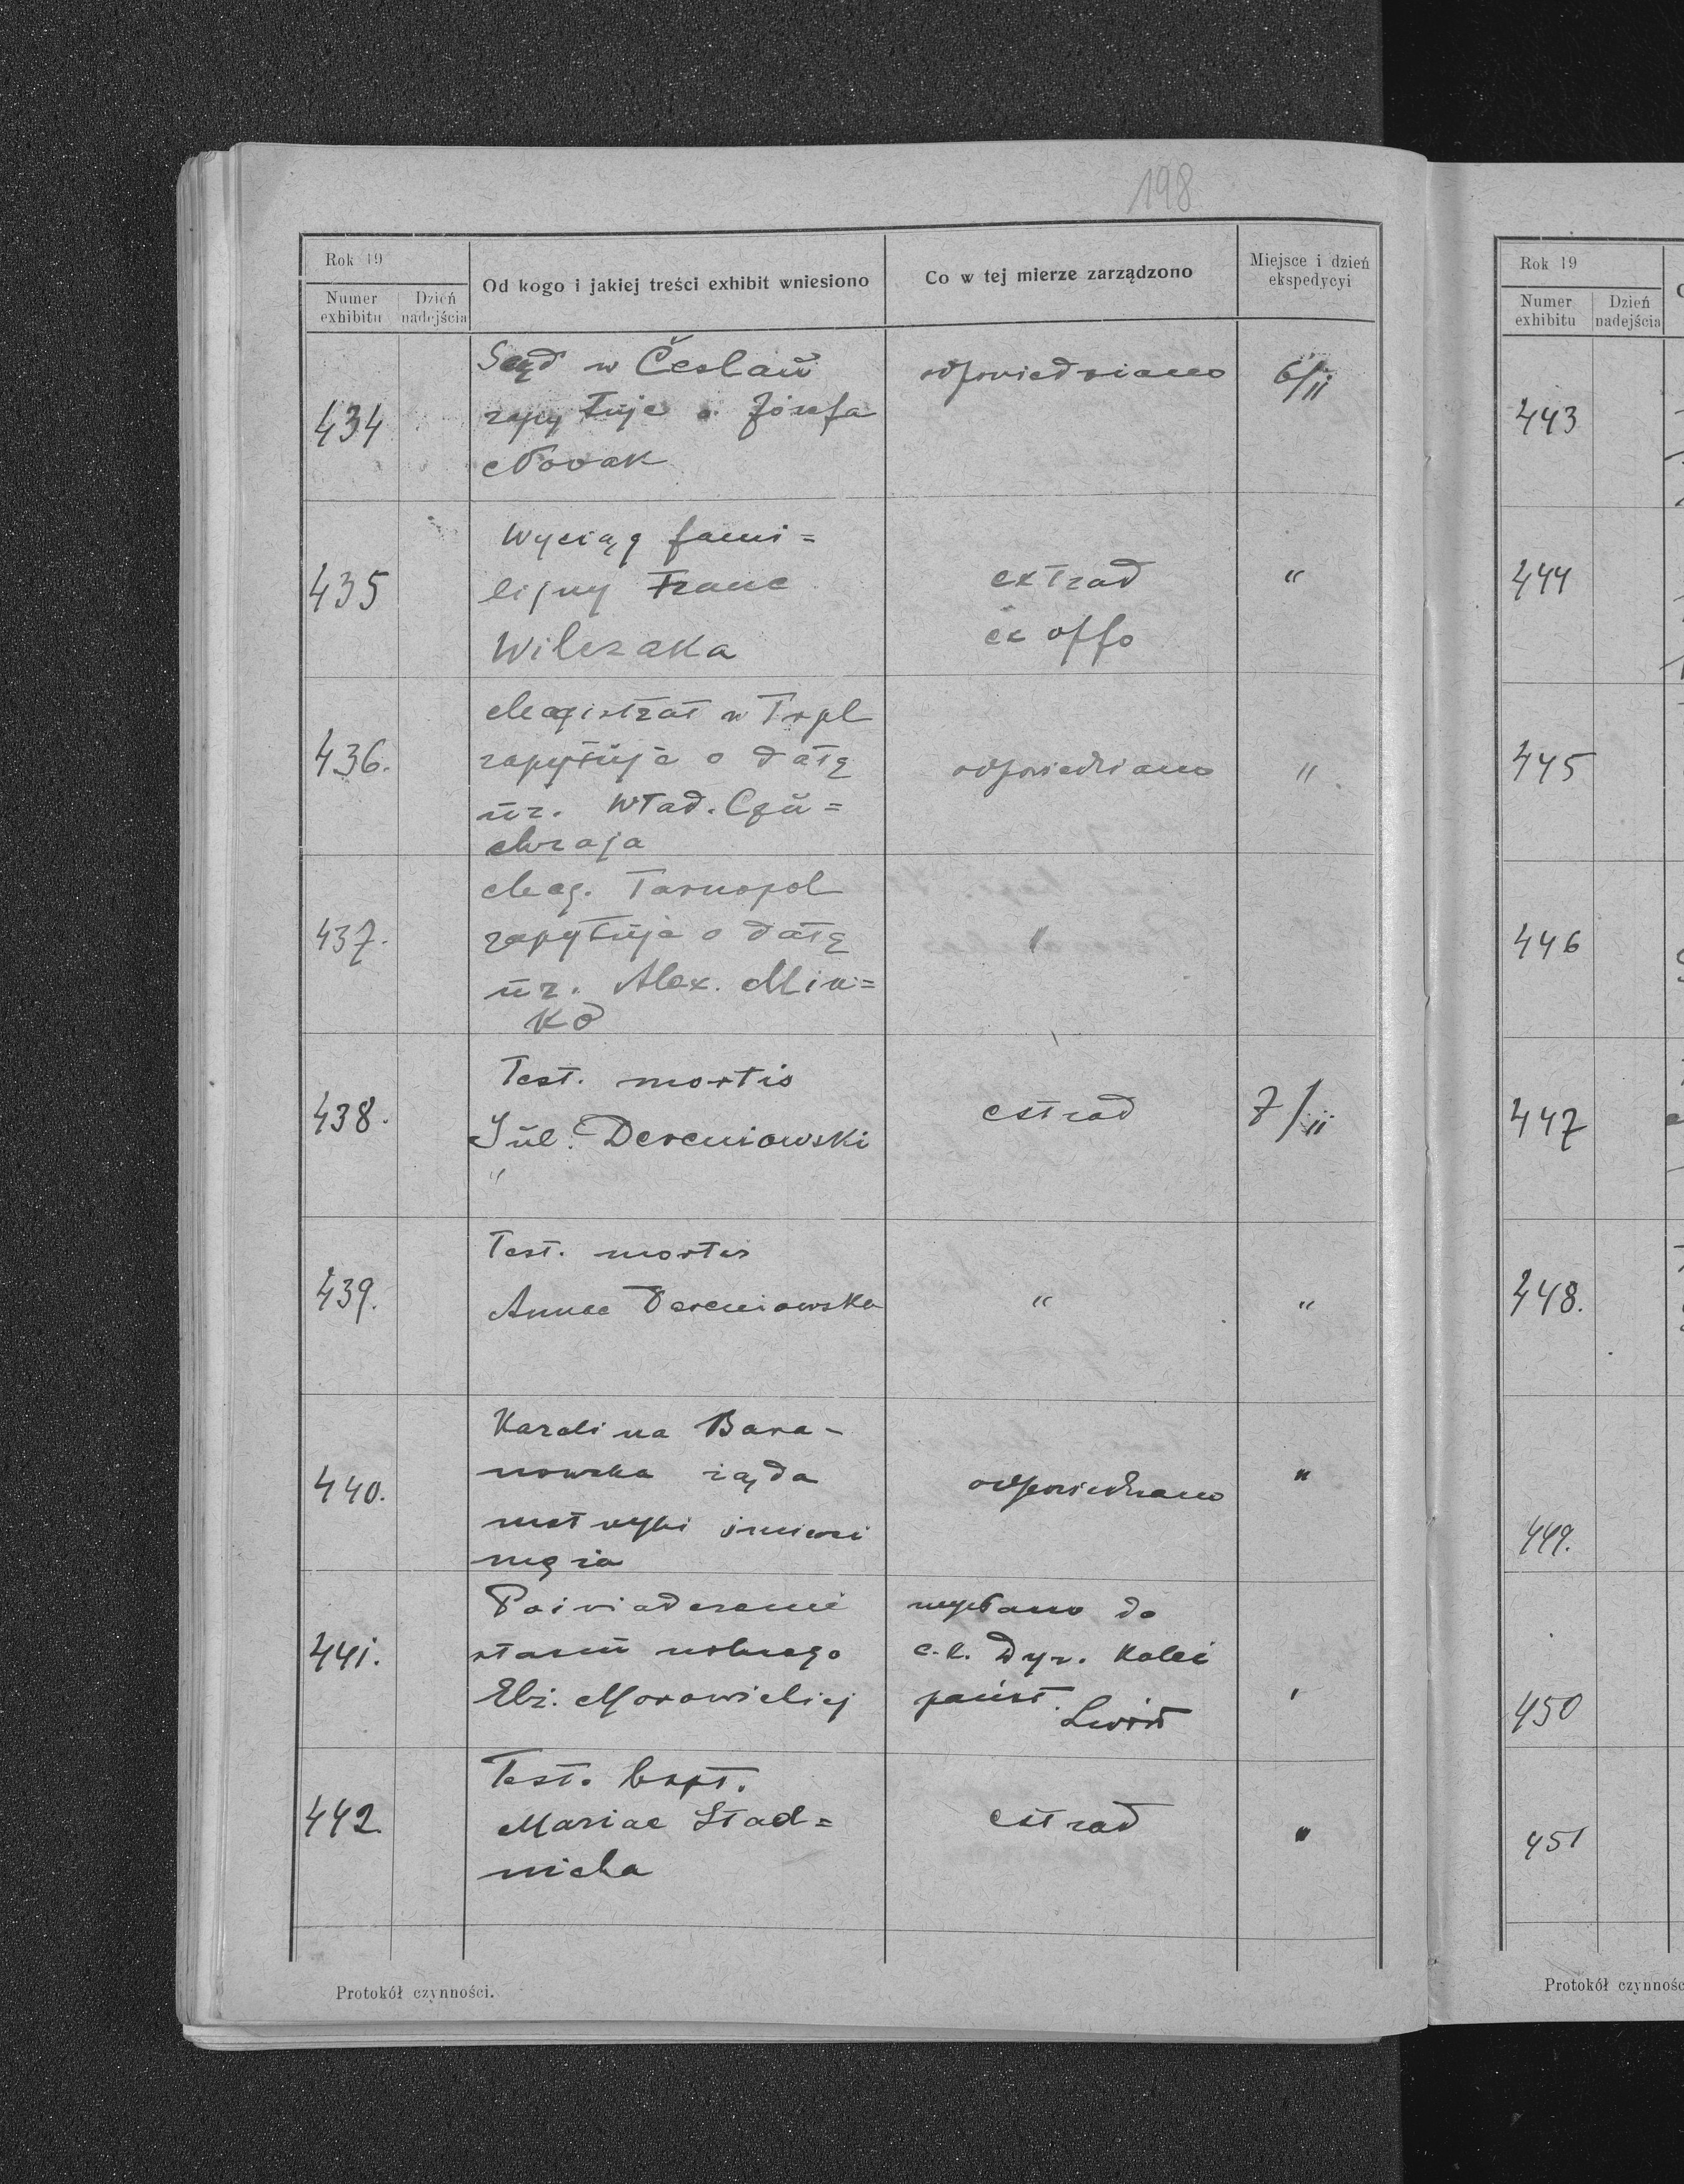 198
Rok 19
Numer exhibitu
Dzień nadejścia
Od kogo i jakiej treści exhibit wniesiono
Co w tej mierze zarządzono
Miejsce i dzień ekspedycyi
434
Sąd w Česlaŭ
zapytuje o Józefa
Novak
odpowiedziano
6/II
435
Wyciąg fami=
lijny Franc
Wilczaka
extrad
ex offo
"
436.
Magistrat w Trpl
zapytuje o datę
ur. Wład. Czu=
chraja
odpowiedziano
"
437.
Mag. Tarnopol
zapytuje o datę
ur. Alex. Min=
ko
"
438.
Test. mortis
Jul. Dereniowski
"
extrad
7/II
439.
Test. mortis
Annae Dereniowska
"
"
440.
Karolina Bara-
nowska żąda
metryki śmierci
męża
odpowiedziano
"
441.
Poświadczenie
stanu wolnego
Elż. Morawickiej
wysłano do
c.k. Dyr. Kolei
państ.
Lwów
"
442.
Test. bapt.
Mariae Stad=
nicka
extrad
"
Protokół czynności.
Rok 19
Numer exhibitu
Dzień nadejścia
443
444
445
446
447
448.
449.
450
451
Protokół czynnośc